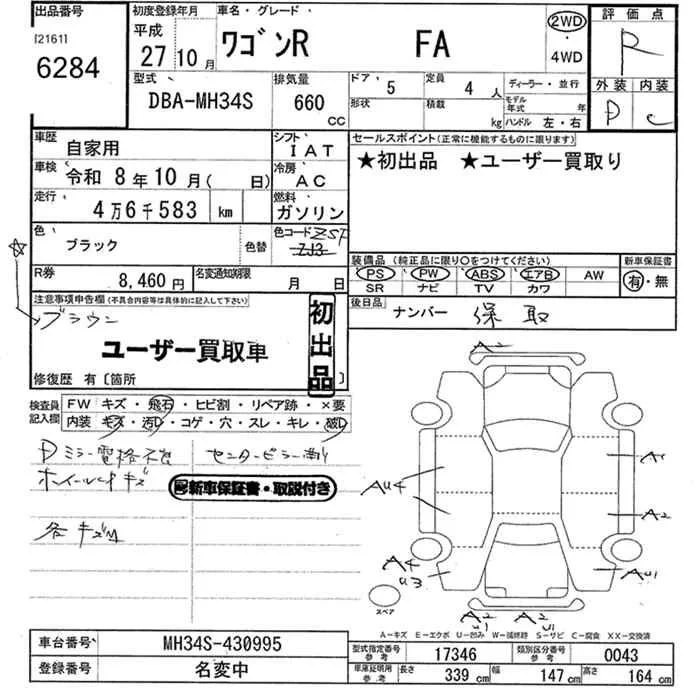 出品番号
[2161]
6284
初度登録年月
平成
27 10 月
車名・グレード
ワゴンR FA
2WD
・
4WD
評価点
R
外装 内装
D C
型式
DBA-MH34S
排気量
660 CC
ドア 5
定員 4 人
形状
積載 kg
ディーラー・並行
モデル年式 年
ハンドル 左・右
車歴 自家用
シフト IAT
車検 令和 8 年 10 月( 日)
冷房 AC
走行 4 万 6 千 583 km
燃料 ガソリン
色 ブラック
色替
色コード ZSF
ZJ3
R券 8,460 円
名変通知期限 月 日
セールスポイント(正常に機能するものに限ります)
★初出品 ★ユーザー買取り
装備品(純正品に限り○をつけてください)
PS PW ABS エアB AW
SR ナビ TV カワ
新車保証書
有・無
後日品 ナンバー 保 取
☆
注意事項申告欄(不具合内容等は具体的に記入して下さい)
ブラウン
初出品
ユーザー買取車
修復歴 有〔箇所 〕
検査員記入欄
FW キズ・飛石・ヒビ割・リペア跡・×要
内装 キズ・汚D・コゲ・穴・スレ・キレ・破D
Dミラー電格不良 センターピラー
ホイールキャップキズ
新車保証書・取説付き
各キズ
A2
A1
AU4
A2
A4
U3
AU1
A2
U1
A2
U1
スペア
A－キズ E－エクボ U－凹み W－補修跡 S－サビ C－腐食 XX－交換済
車台番号 MH34S-430995
登録番号 名変中
型式指定番号 参考 17346
類別区分番号 参考 0043
車庫証明用 参考 長さ 339 cm 幅 147 cm 高さ 164 cm